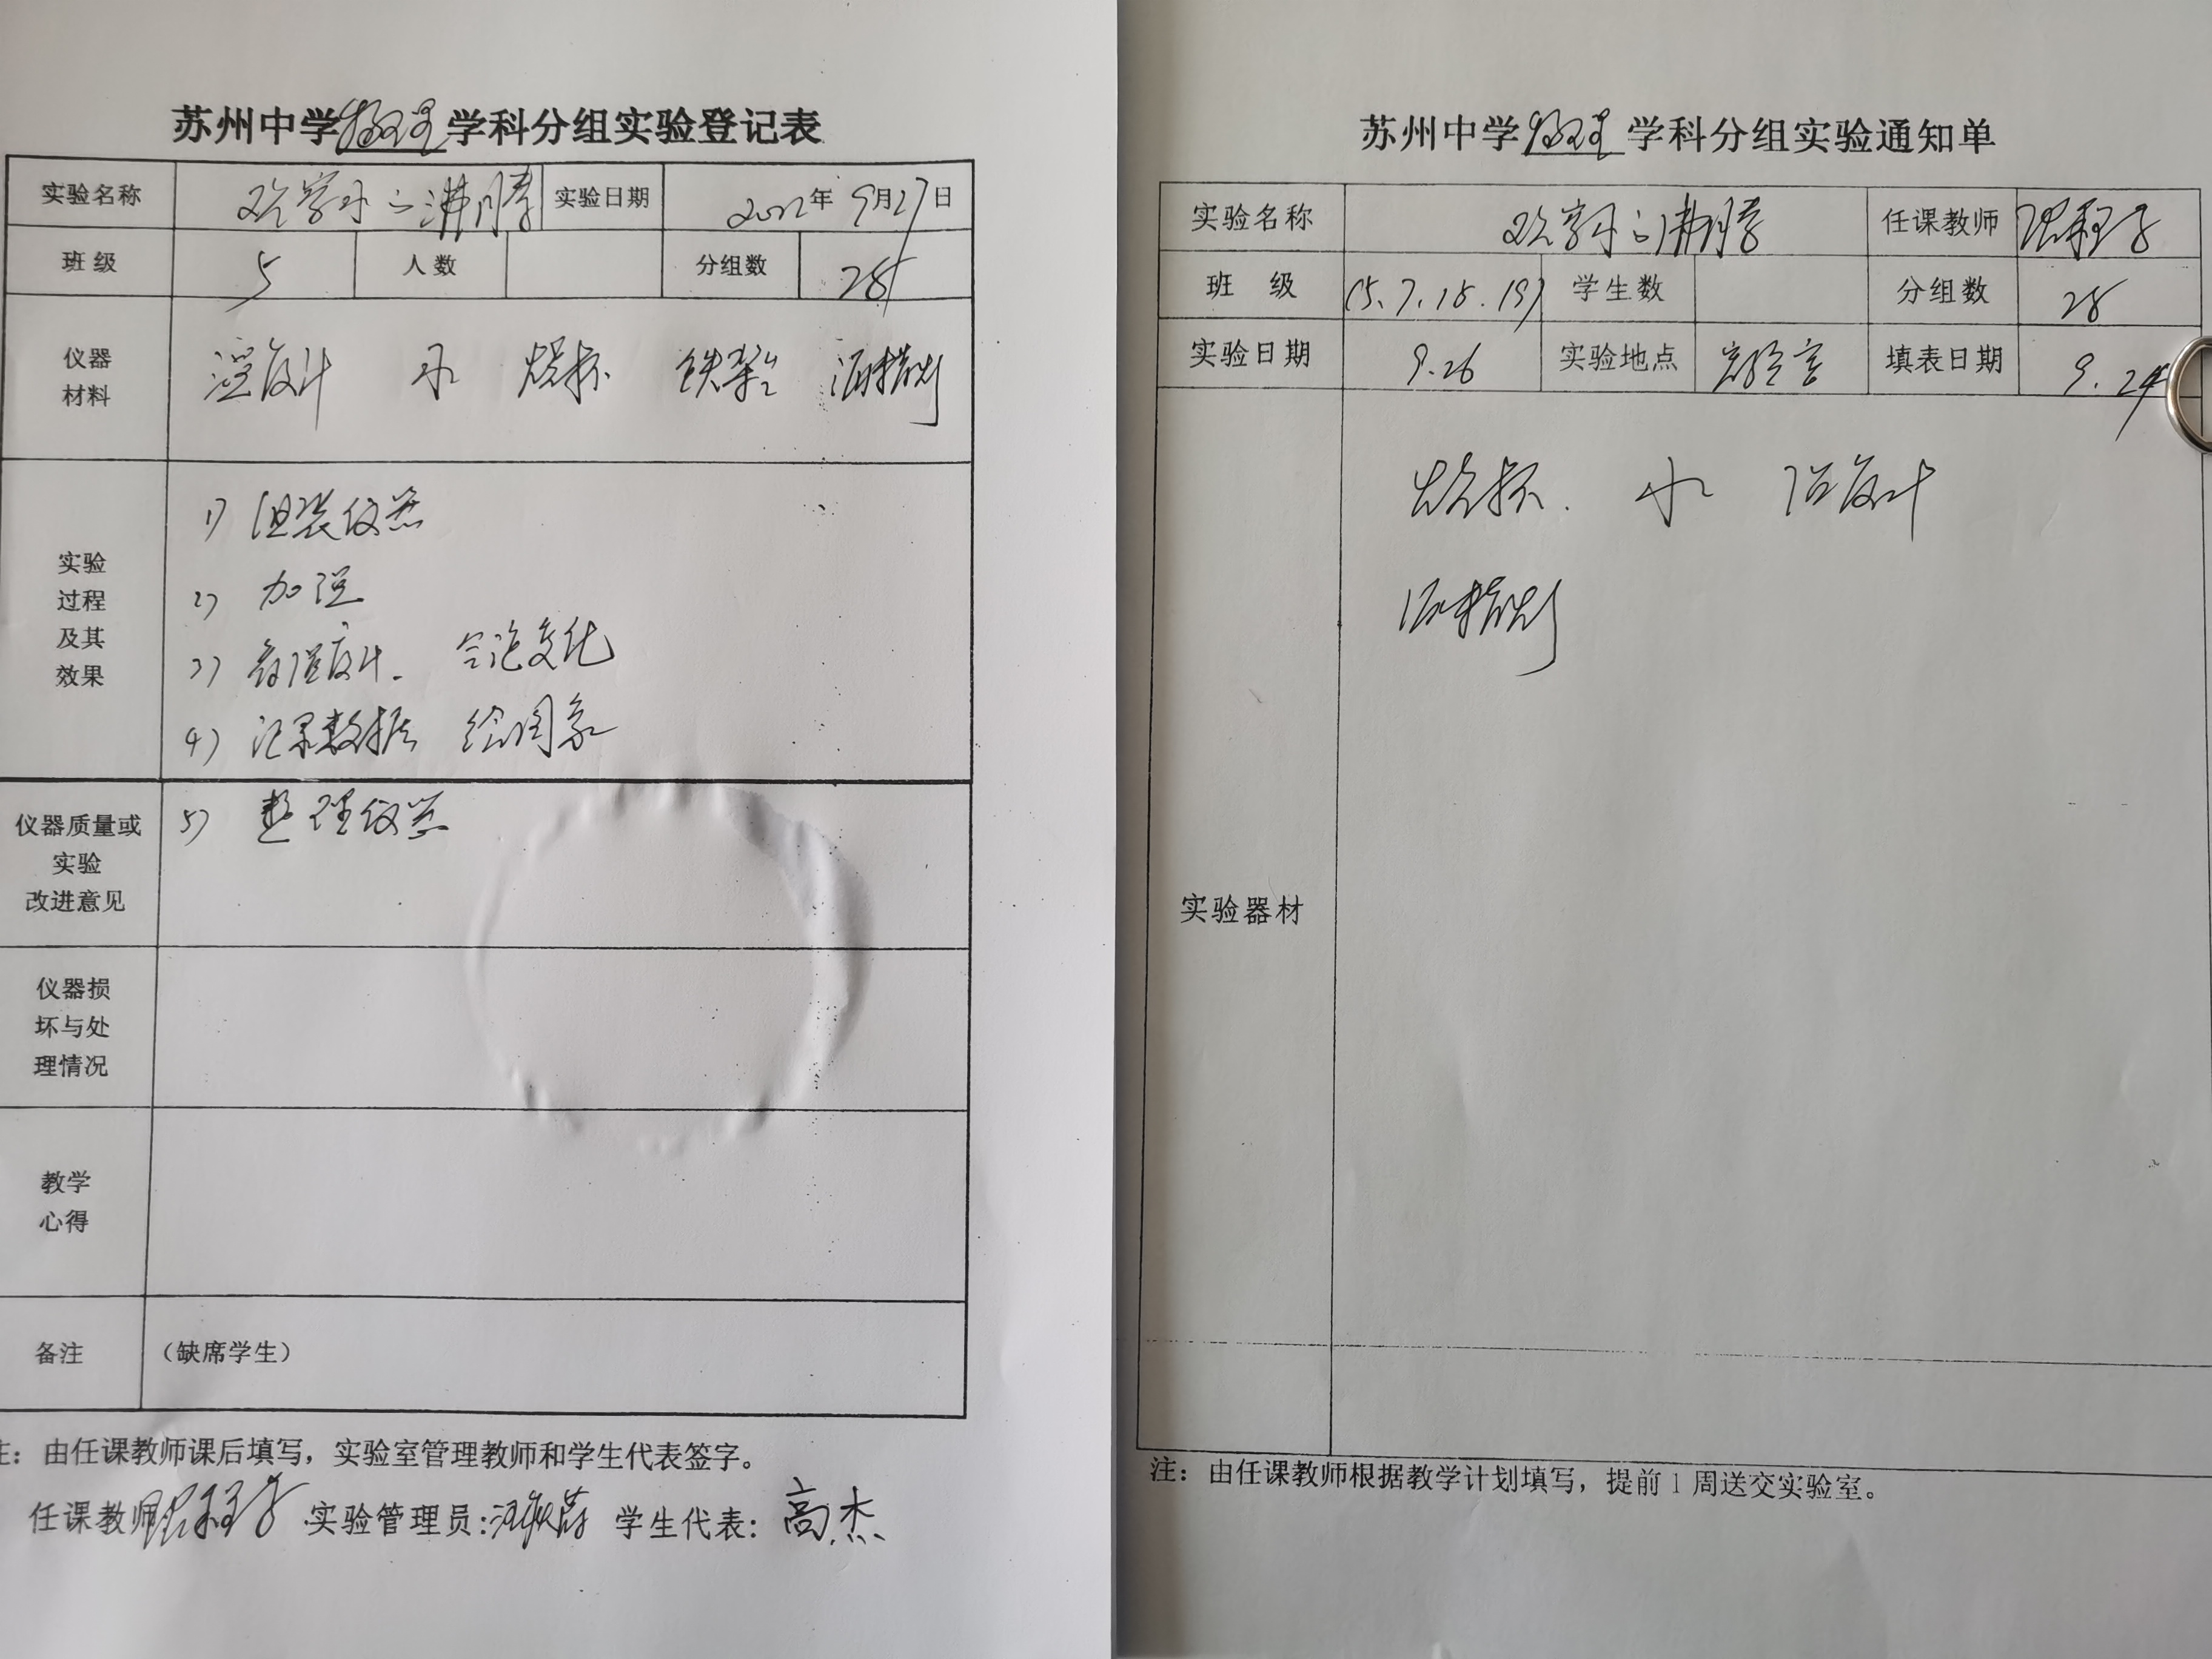 苏州中学物理学科分组实验登记表
实验名称 观察水的沸腾 实验日期 2022年9月27日
班级 5 人数 分组数 28
仪器材料 温度计 水 烧杯 铁架台 酒精灯
实验过程及其效果
1) 组装仪器
2) 加温
3) 看温度计. 气泡变化
4) 记录数据 绘图象
仪器质量或实验改进意见
5) 整理仪器
仪器损坏与处理情况
教学心得
备注 (缺席学生)
注：由任课教师课后填写，实验室管理教师和学生代表签字。
任课教师 实验管理员: 学生代表: 高杰
苏州中学物理学科分组实验通知单
实验名称 观察水的沸腾 任课教师
班 级 (5.7.18.19) 学生数 分组数 28
实验日期 9.26 实验地点 实验室 填表日期 9.24
实验器材
烧杯. 水 温度计
酒精灯
注：由任课教师根据教学计划填写，提前1周送交实验室。